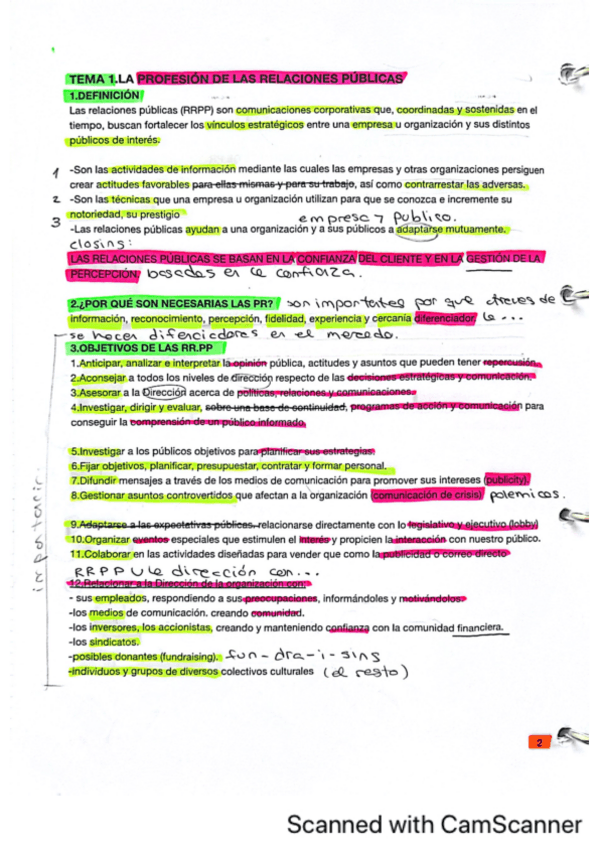 TEMA 1.LA PROFESIÓN DE LAS RELACIONES PÚBLICAS
1.DEFINICIÓN
Las relaciones públicas (RRPP) son comunicaciones corporativas que, coordinadas y sostenidas en el
tiempo, buscan fortalecer los vínculos estratégicos entre una empresa u organización y sus distintos
públicos de interés.
1 -Son las actividades de información mediante las cuales las empresas y otras organizaciones persiguen
crear actitudes favorables para ellas mismas y para su trabajo, así como contrarrestar las adversas.
2 -Son las técnicas que una empresa u organización utilizan para que se conozca e incremente su
notoriedad, su prestigio
empresa y publico.
3 -Las relaciones públicas ayudan a una organización y a sus públicos a adaptarse mutuamente.
closing:
LAS RELACIONES PÚBLICAS SE BASAN EN LA CONFIANZA DEL CLIENTE Y EN LA GESTIÓN DE LA
PERCEPCIÓN basadas en la confianza.
2.¿POR QUÉ SON NECESARIAS LAS PR? son importantes por que atreves de
información, reconocimiento, percepción, fidelidad, experiencia y cercanía diferenciador la ...
se hacen difenciadores en el mercado.
3.OBJETIVOS DE LAS RR.PP
1.Anticipar, analizar e interpretar la opinión pública, actitudes y asuntos que pueden tener repercusión.
2.Aconsejar a todos los niveles de dirección respecto de las decisiones estratégicas y comunicación.
3.Asesorar a la Dirección acerca de políticas, relaciones y comunicaciones.
4.Investigar, dirigir y evaluar, sobre una base de continuidad, programas de acción y comunicación para
conseguir la comprensión de un público informado
5.Investigar a los públicos objetivos para planificar sus estrategias.
6.Fijar objetivos, planificar, presupuestar, contratar y formar personal.
7.Difundir mensajes a través de los medios de comunicación para promover sus intereses (publicity).
8.Gestionar asuntos controvertidos que afectan a la organización (comunicación de crisis) polemicos.
9.Adaptarse a las expectativas públicas. relacionarse directamente con lo legislativo y ejecutivo (lobby)
10.Organizar eventos especiales que estimulen el interés y propicien la interacción con nuestro público.
11.Colaborar en las actividades diseñadas para vender que como la publicidad o correo directo
RRPP U le dirección con...
12.Relacionar a la Dirección de la organización con:
- sus empleados, respondiendo a sus preocupaciones, informándoles y motivándolos.
-los medios de comunicación. creando comunidad.
-los inversores, los accionistas, creando y manteniendo confianza con la comunidad financiera.
-los sindicatos.
-posibles donantes (fundraising). fun-dra-i-sing
-individuos y grupos de diversos colectivos culturales (el resto)
2
Scanned with CamScanner